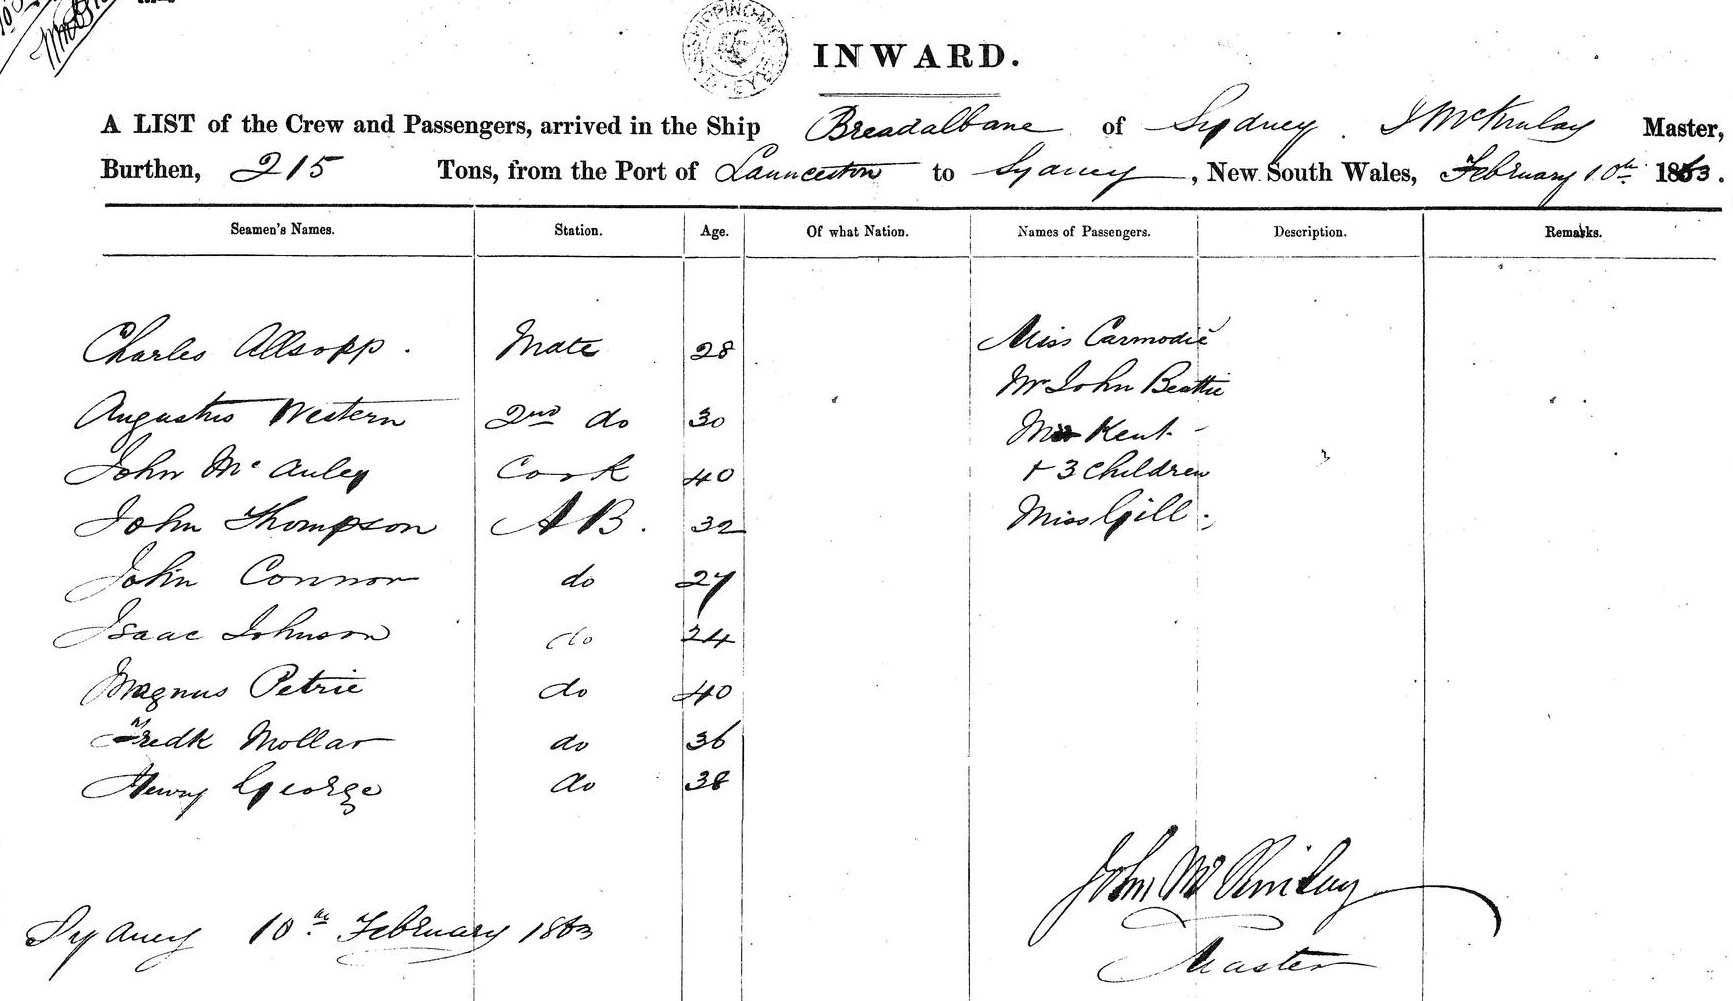 INWARD.
A LIST of the Crew and Passengers, arrived in the Ship Breadalbane of Sydney. J McKinlay Master,
Burthen, 215 Tons, from the Port of Launceston to Sydney, New South Wales, February 10th 1863.
Seamen's Names. Station. Age. Of what Nation. Names of Passengers. Description. Remarks.
Charles Allsopp. Mate 28 Miss Carmodie
Mr John Beattie
Augustus Western 2nd do 30 Kent
John Mc Auley Cook 40 + 3 Children
John Thompson AB. 32 Miss Gill
John Connor do 27
Isaac Johnson do 24
Magnus Petrie do 40
Fredk Mollar do 36
Henry George do 38
John McKinlay
Sydney 10th February 1863
Master